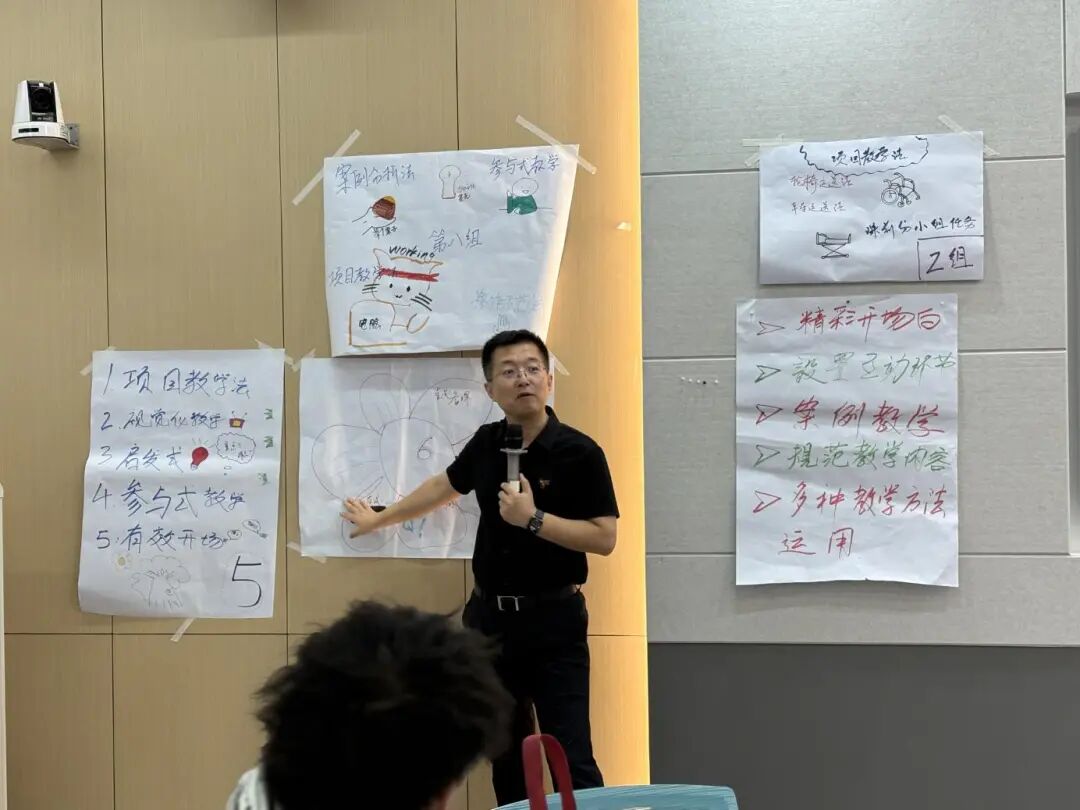 1 项目教学法
2. 视觉化教学
3 启发式
4. 参与式教学
5. 有效开场
5
案例分析法
参与式教学
第八组
working
项目教学
电脑
6
项目教学法
轮椅运送法
平车运送法
Z组
精彩开场白
设置互动环节
案例教学
规范教学内容
多种教学方法
运用